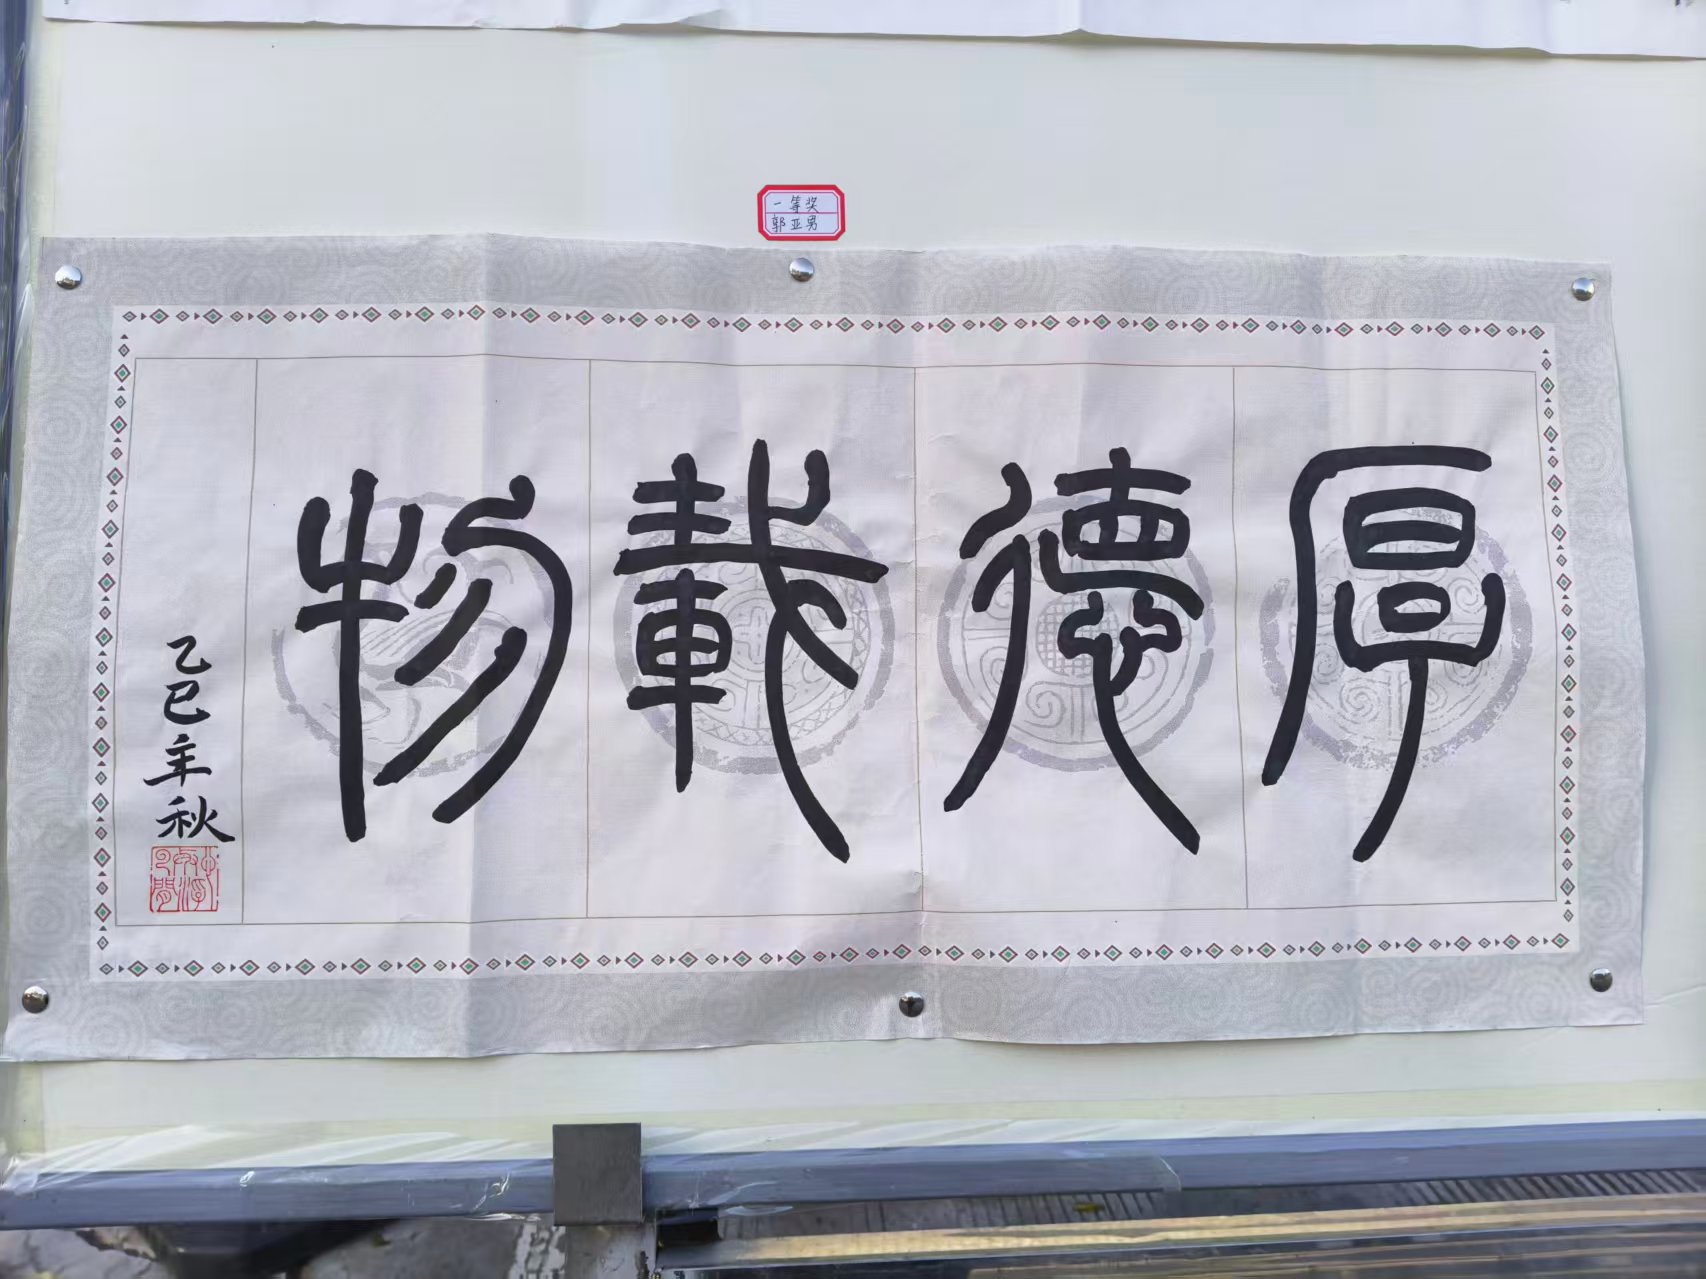 一等奖
郭亚男
厚德載物
乙巳年秋